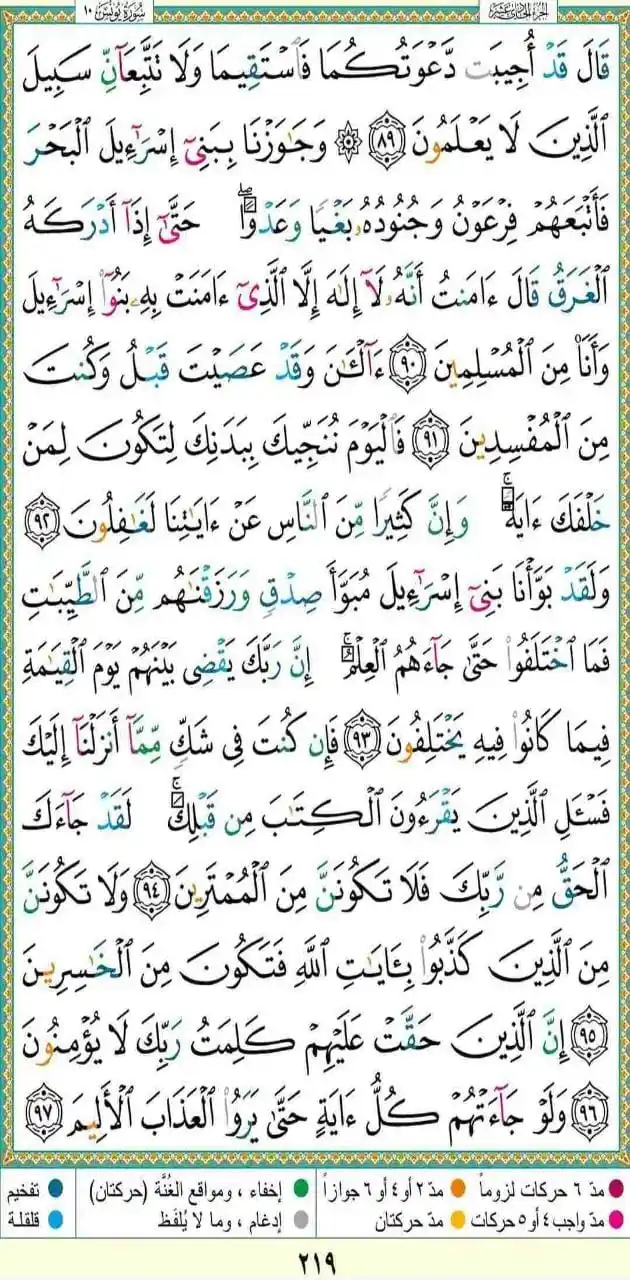 الجزء الحادي عشر
سورة يونس ١٠
قَالَ قَدْ أُجِيبَت دَّعْوَتُكُمَا فَٱسْتَقِيمَا وَلَا تَتَّبِعَآنِّ سَبِيلَ
ٱلَّذِينَ لَا يَعْلَمُونَ ٨٩ ۞ وَجَٰوَزْنَا بِبَنِىٓ إِسْرَٰٓءِيلَ ٱلْبَحْرَ
فَأَتْبَعَهُمْ فِرْعَوْنُ وَجُنُودُهُۥ بَغْيًا وَعَدْوًا ۖ حَتَّىٰٓ إِذَآ أَدْرَكَهُ
ٱلْغَرَقُ قَالَ ءَامَنتُ أَنَّهُۥ لَآ إِلَٰهَ إِلَّا ٱلَّذِىٓ ءَامَنَتْ بِهِۦ بَنُوٓا۟ إِسْرَٰٓءِيلَ
وَأَنَا۠ مِنَ ٱلْمُسْلِمِينَ ٩٠ ءَآلْـَٰٔنَ وَقَدْ عَصَيْتَ قَبْلُ وَكُنتَ
مِنَ ٱلْمُفْسِدِينَ ٩١ فَٱلْيَوْمَ نُنَجِّيكَ بِبَدَنِكَ لِتَكُونَ لِمَنْ
خَلْفَكَ ءَايَةً ۚ وَإِنَّ كَثِيرًا مِّنَ ٱلنَّاسِ عَنْ ءَايَٰتِنَا لَغَٰفِلُونَ ٩٢
وَلَقَدْ بَوَّأْنَا بَنِىٓ إِسْرَٰٓءِيلَ مُبَوَّأَ صِدْقٍ وَرَزَقْنَٰهُم مِّنَ ٱلطَّيِّبَٰتِ
فَمَا ٱخْتَلَفُوا۟ حَتَّىٰ جَآءَهُمُ ٱلْعِلْمُ ۚ إِنَّ رَبَّكَ يَقْضِى بَيْنَهُمْ يَوْمَ ٱلْقِيَٰمَةِ
فِيمَا كَانُوا۟ فِيهِ يَخْتَلِفُونَ ٩٣ فَإِن كُنتَ فِى شَكٍّ مِّمَّآ أَنزَلْنَآ إِلَيْكَ
فَسْـَٔلِ ٱلَّذِينَ يَقْرَءُونَ ٱلْكِتَٰبَ مِن قَبْلِكَ ۚ لَقَدْ جَآءَكَ
ٱلْحَقُّ مِن رَّبِّكَ فَلَا تَكُونَنَّ مِنَ ٱلْمُمْتَرِينَ ٩٤ وَلَا تَكُونَنَّ
مِنَ ٱلَّذِينَ كَذَّبُوا۟ بِـَٔايَٰتِ ٱللَّهِ فَتَكُونَ مِنَ ٱلْخَٰسِرِينَ
٩٥ إِنَّ ٱلَّذِينَ حَقَّتْ عَلَيْهِمْ كَلِمَتُ رَبِّكَ لَا يُؤْمِنُونَ
٩٦ وَلَوْ جَآءَتْهُمْ كُلُّ ءَايَةٍ حَتَّىٰ يَرَوُا۟ ٱلْعَذَابَ ٱلْأَلِيمَ ٩٧
مدّ ٦ حركات لزوماً مدّ ٢ أو ٤ أو ٦ جوازاً إخفاء، ومواقع الغُنَّة (حركتان) تفخيم
مدّ واجب ٤ أو ٥ حركات مدّ حركتان إدغام، وما لا يُلفَظ قلقلة
٢١٩